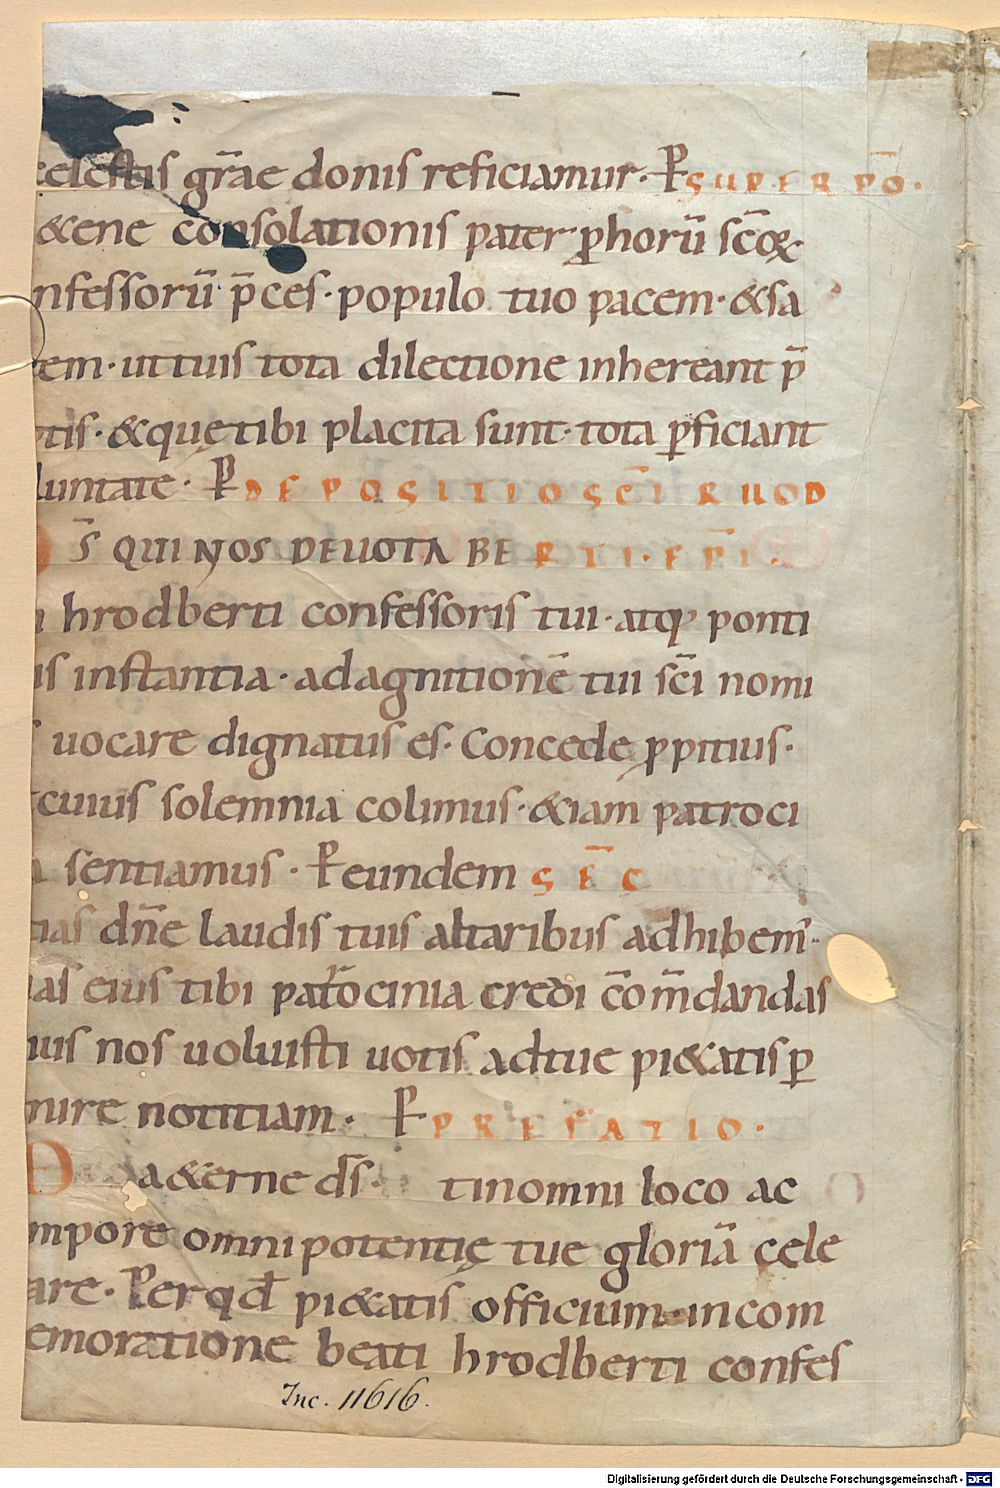 celestis gr̄ae donis reficiamur· P SUPER PO·
&ene consolationis pater· p̱horū sc̄oꝝ·
nfessorū p̄ces· populo tuo pacem· &sa
tem· ut tuis tota dilectione inhereant p̄
otis· &quę tibi placita sunt· tota p̱ficiant
luntatē· P DEPOSITIO SC̄I RUOD
D S̄ QUI NOS DEUOTA BE RTI· EP̄I·
i hrodberti confessoris tui· atq; ponti
is instantia· ad agnitionē tui sc̄i nomi
s uocare dignatus es· Concede ꝓpitius·
t cuius solemnia colimus· &iam patroci
a sentiamus· Per eundem SEC̄
tias dn̄e laudis tuis altaribus adhibem᷒·
uas eius tibi pat̄rocinia credi cōm̄dandas
uis nos uoluisti uotis ad tuę pi&atis p̱
nire notitiam· P PREFATIO·
D a &erne ds̄· ti n omni loco ac
mpore omnipotentię tue gloriā cele
are· Per qd̄ pi&atis officium· in com
emoratione beati hrodberti confes
Inc. 11616.
Digitalisierung gefördert durch die Deutsche Forschungsgemeinschaft - DFG